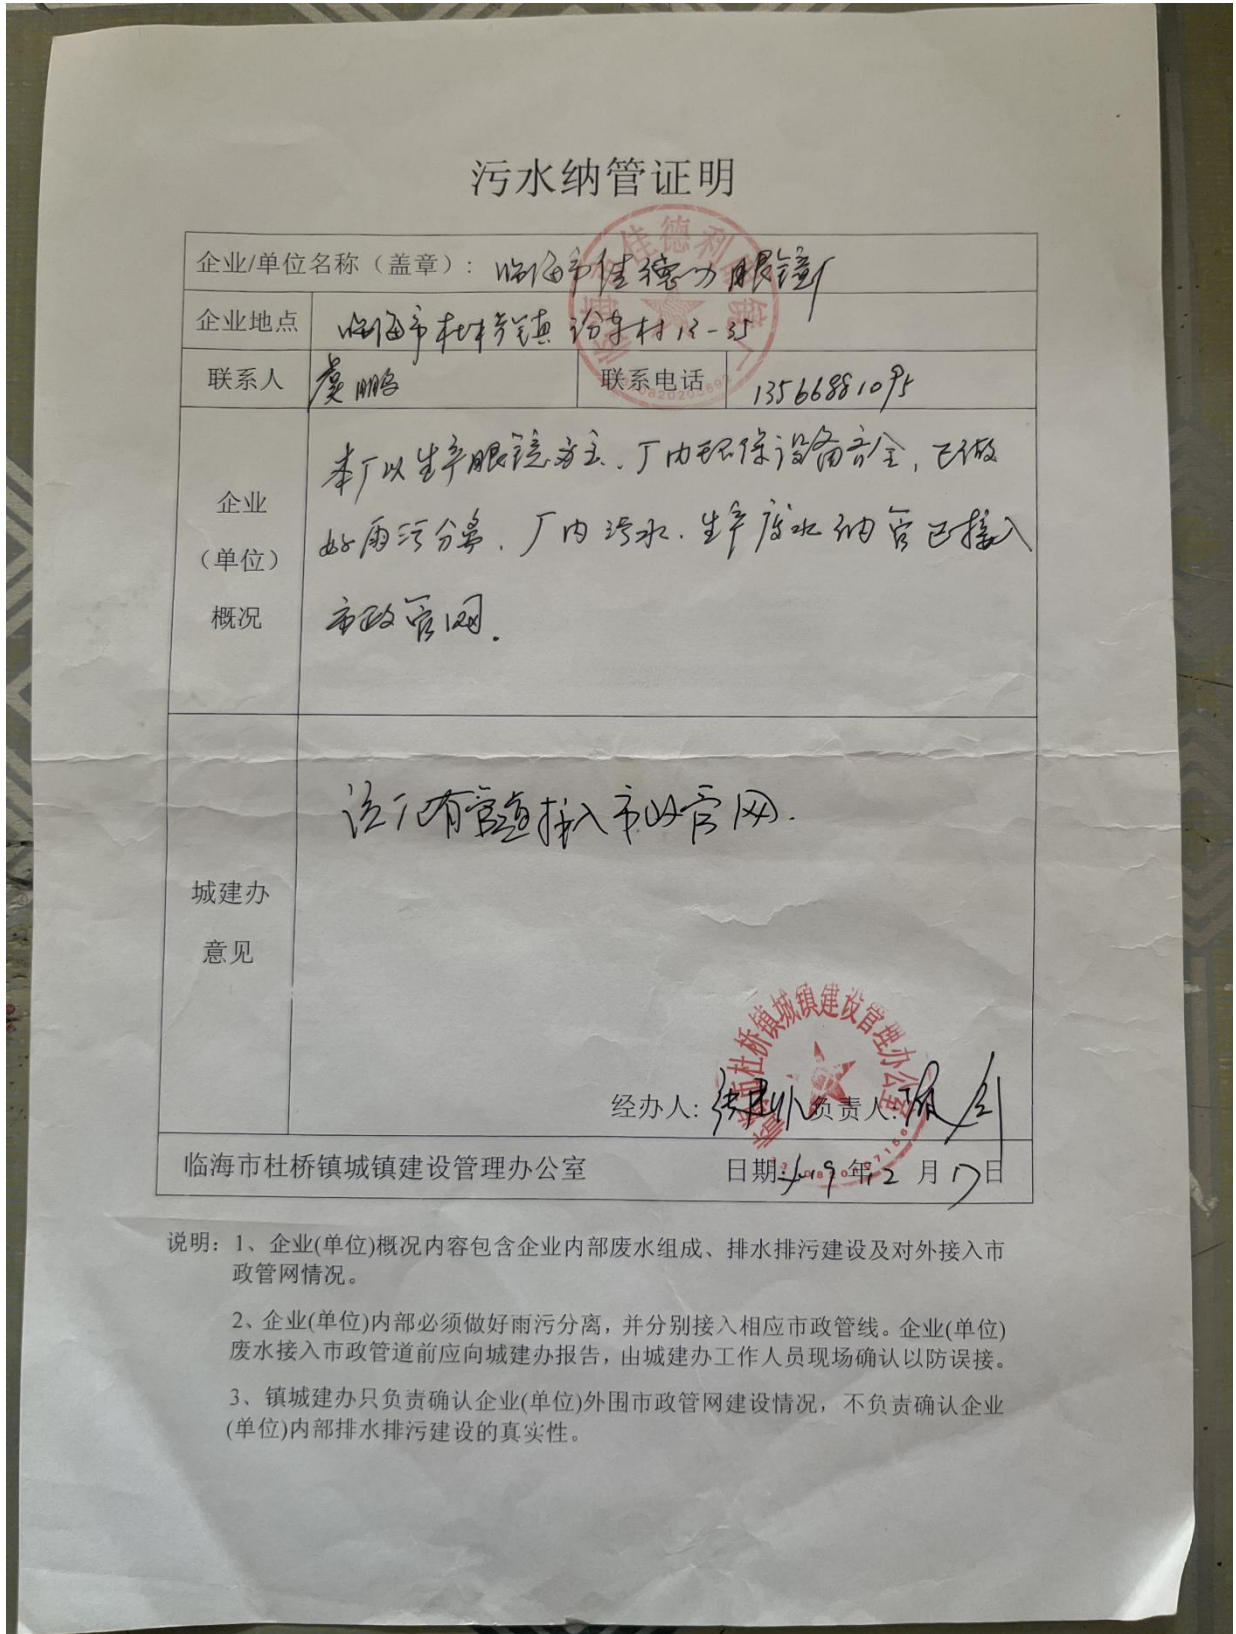 污水纳管证明
企业/单位名称（盖章）：临海市佳德利眼镜厂
企业地点 临海市杜桥镇汾东村13-35
联系人 虞鹏 联系电话 13566881095
企业（单位）概况
本厂以生产眼镜为主、厂内环保设备齐全，已做
好雨污分离、厂内污水、生产废水纳管已接入
市政管网.
城建办意见
该厂有管道接入市政管网.
临海市杜桥镇城镇建设管理办公室
经办人: 负责人:
临海市杜桥镇城镇建设管理办公室 日期:2019年12月17日
说明：1、企业(单位)概况内容包含企业内部废水组成、排水排污建设及对外接入市
政管网情况。
2、企业(单位)内部必须做好雨污分离，并分别接入相应市政管线。企业(单位)
废水接入市政管道前应向城建办报告，由城建办工作人员现场确认以防误接。
3、镇城建办只负责确认企业(单位)外围市政管网建设情况，不负责确认企业
(单位)内部排水排污建设的真实性。